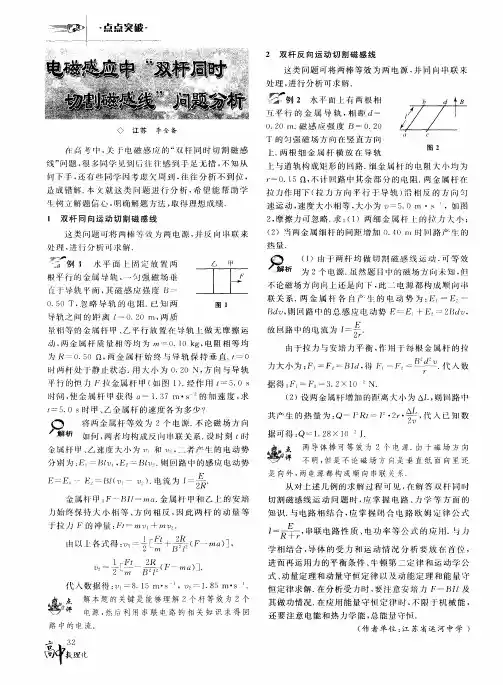 ·点点突破·
电磁感应中“双杆同时
切割磁感线”问题分析
◇ 江苏 李全备
在高中,关于电磁感应的“双杆同时切割磁感
线”问题,很多同学见到后往往感到手足无措,不知从
何下手,还有些同学因考虑欠周到,往往分析不到位,
造成错解.本文就这类问题进行分析,希望能帮助学
生树立解题信心,明确解题方法,取得理想成绩.
1 双杆同向运动切割磁感线
这类问题可将两棒等效为两电源,并反向串联来
处理,进行分析可求解.
例1 水平面上固定放置两
根平行的金属导轨,一匀强磁场垂
直于导轨平面,其磁感应强度B=
0.50 T,忽略导轨的电阻.已知两
导轨之间的距离l=0.20 m,两质
乙 甲
F
图1
量相等的金属杆甲、乙平行放置在导轨上做无摩擦运
动,两金属杆质量相等均为m=0.10 kg,电阻相等均
为R=0.50 Ω,两金属杆始终与导轨保持垂直.t=0
时两杆处于静止状态.用大小为0.20 N,方向与导轨
平行的恒力F拉金属杆甲(如图1).经作用t=5.0 s
时间,使金属杆甲获得a=1.37 m·s⁻²的加速度,求
t=5.0 s时甲、乙金属杆的速度各为多少?
解析 将两金属杆等效为2个电源.不论磁场方向
如何,两者均构成反向串联关系.设时刻t时
金属杆甲、乙速度大小为v₁和v₂,二者产生的电动势
分别为:E₁=Blv₁,E₂=Blv₂.则回路中的感应电动势
E=E₁-E₂=Bl(v₁-v₂).电流为I=E/2R.
金属杆甲:F-BIl=ma.金属杆甲和乙上的安培
力始终保持大小相等、方向相反,因此两杆的动量等
于拉力F的冲量:Ft=mv₁+mv₂.
由以上各式得:v₁=1/2[Ft/m+2R/B²l²(F-ma)],
v₂=1/2[Ft/m-2R/B²l²(F-ma)].
代入数据得:v₁=8.15 m·s⁻¹,v₂=1.85 m·s⁻¹.
点评 解本题的关键是能够理解2个杆等效为2个
电源,然后利用串联电路的相关知识求得回
路中的电流.
2 双杆反向运动切割磁感线
这类问题可将两棒等效为两电源,并同向串联来
处理,进行分析可求解.
例2 水平面上有两根相
互平行的金属导轨,相距d=
0.20 m.磁感应强度B=0.20
T的匀强磁场方向在竖直方向
上.两根细金属杆横放在导轨
b d B
a c
图2
上与道轨构成矩形的回路.细金属杆的电阻大小均为
r=0.15 Ω,不计回路中其余部分的电阻.两金属杆在
拉力作用下(拉力方向平行于导轨)沿相反的方向匀
速运动,速度大小相等,大小为v=5.0 m·s⁻¹,如图
2,摩擦力可忽略.求:(1)两细金属杆上的拉力大小;
(2)当两金属细杆的间距增加0.40 m时回路产生的
热量.
解析 (1)由于两杆均做切割磁感线运动,可等效
为2个电源.虽然题目中的磁场方向未知,但
不论磁场方向向上还是向下,此二电源都构成顺向串
联关系.两金属杆各自产生的电动势为:E₁=E₂=
Bdv,则回路中的总感应电动势E=E₁+E₂=2Bdv,
故回路中的电流为I=E/2r.
由于拉力与安培力平衡,作用于每根金属杆的拉
力大小为:F₁=F₂=BId,得F₁=F₂=B²d²v/r.代入数
据得:F₁=F₂=3.2×10⁻² N.
(2)设两金属杆增加的距离大小为ΔL,则回路中
共产生的热量为:Q=I²Rt=I²·2r·ΔL/2v,代入已知数
据可得:Q=1.28×10⁻² J.
点评 两导体棒可等效为2个电源.由于磁场方向
不明,但是不论磁场方向是垂直纸面向里还
是向外,两电源都构成顺向串联关系.
从对上述见例的求解过程可见,在解答双杆同时
切割磁感线运动问题时,应掌握电路、力学等方面的
知识.与电路相结合,应掌握闭合电路欧姆定律公式
I=E/(R+r),串联电路性质、电功率等公式的应用.与力
学相结合,导体的受力和运动情况分析要放在首位,
进而再运用力的平衡条件、牛顿第二定律和运动学公
式、动量定理和动量守恒定律以及动能定理和能量守
恒定律求解.在分析受力时,要注意安培力F=BIl及
其做功情况.在应用能量守恒定律时,不限于机械能,
还要注意电能和热力学能,总能量守恒.
(作者单位:江苏省运河中学)
32
高中数理化